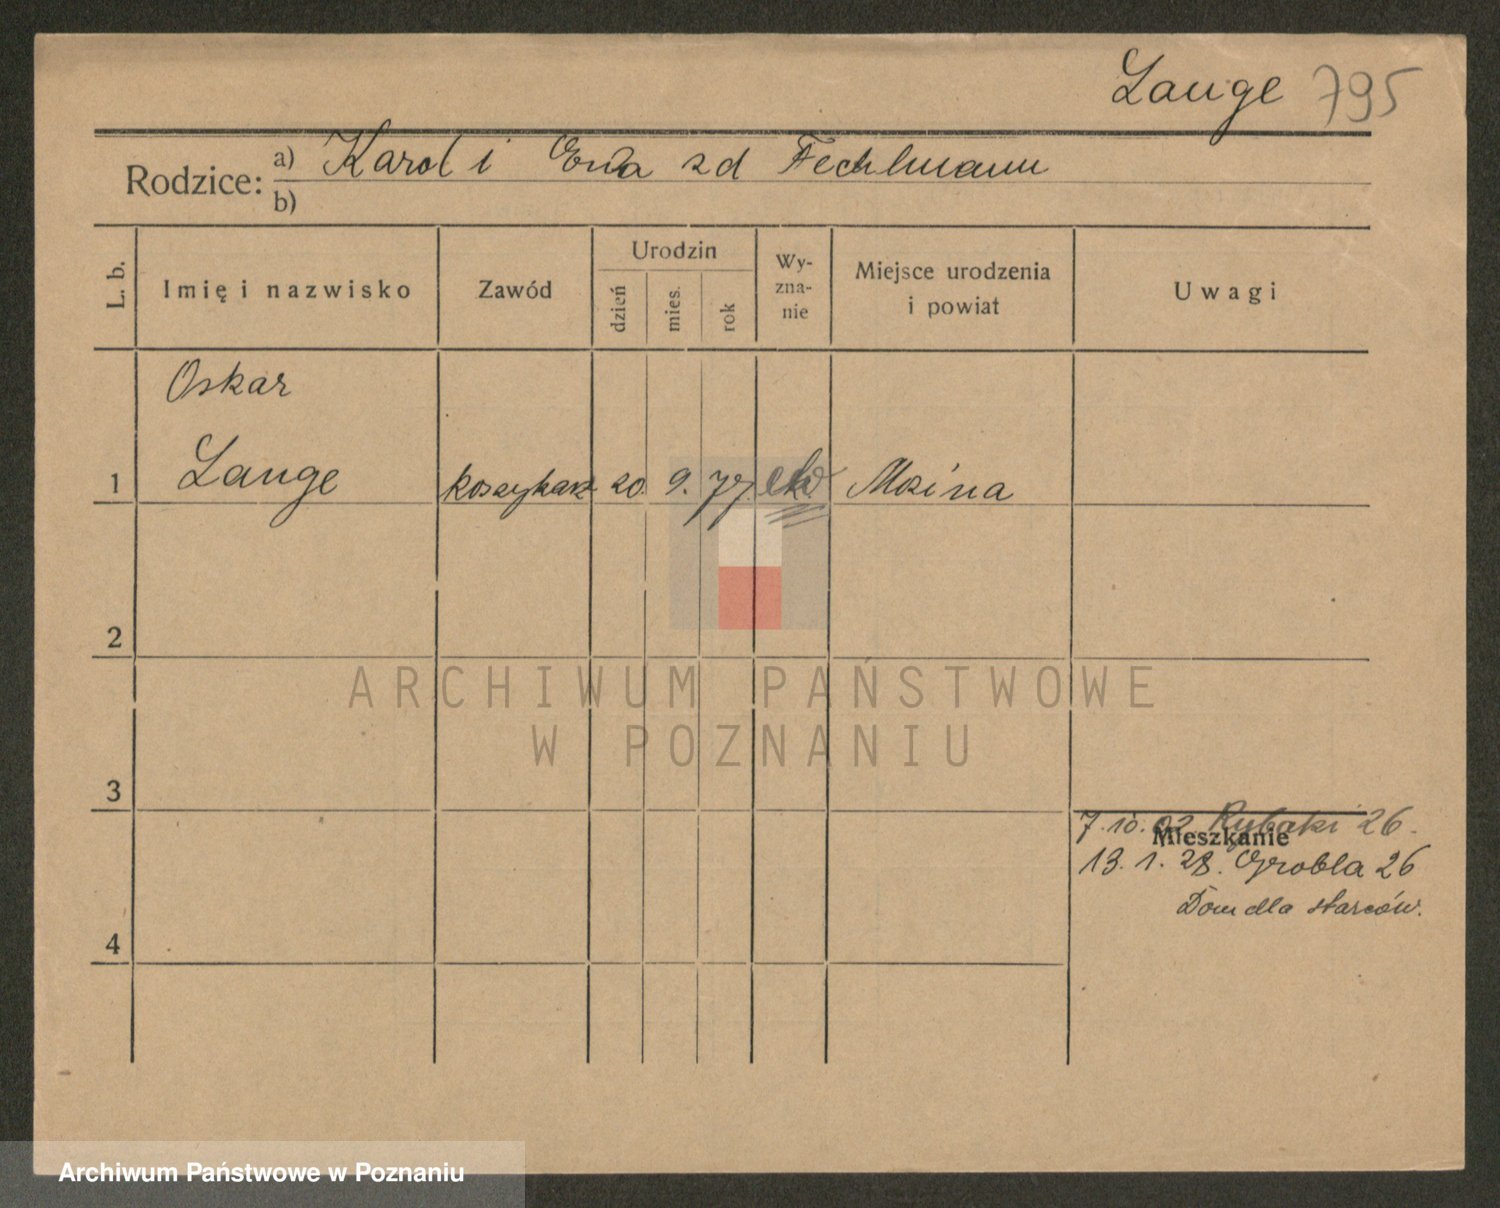 Lange 795
Rodzice: a) Karol i Ewa zd Fechlmann
b)
L. b. Imię i nazwisko Zawód Urodzin dzień mies. rok Wy-zna-nie Miejsce urodzenia i powiat Uwagi
Oskar
1 Lange koszykarz 20. 9. 77. ew Mosina
2
ARCHIWUM PAŃSTWOWE
W POZNANIU
3
Mieszkanie
7.10.02 Rybaki 26.
13.1.28. Grobla 26
Dom dla starców.
4
Archiwum Państwowe w Poznaniu